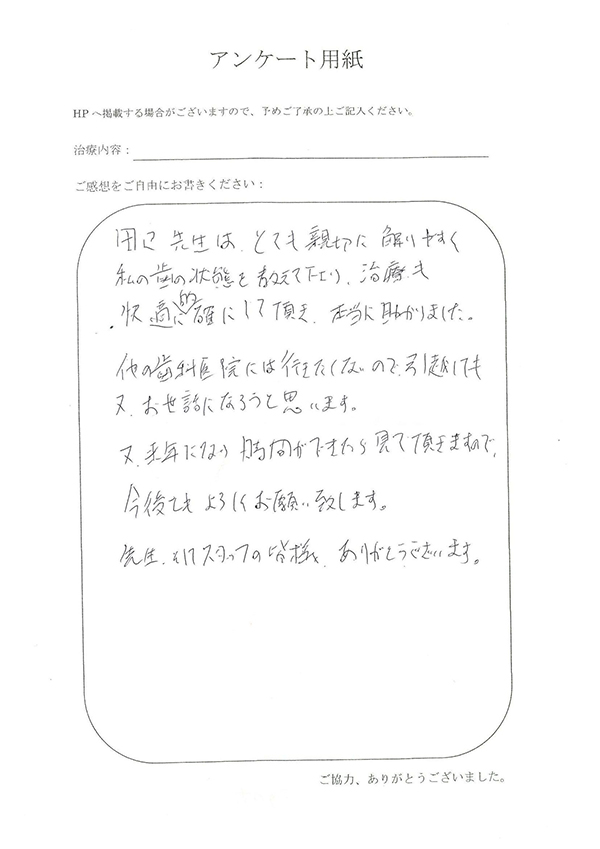 アンケート用紙
HPへ掲載する場合がございますので、予めご了承の上ご記入ください。
治療内容：
ご感想をご自由にお書きください：
田辺 先生は、とても親切に 解りやすく
私の歯の状態を教えて下さり、治療も
快適に的確にして頂き、本当に助かりました。
他の歯科医院には行きたくないので、引越しても
又、お世話になろうと思います。
又、来年になり 時間ができたら見て頂きますので、
今後ともよろしくお願い致します。
先生、そしてスタッフの皆様、ありがとうございます。
ご協力、ありがとうございました。